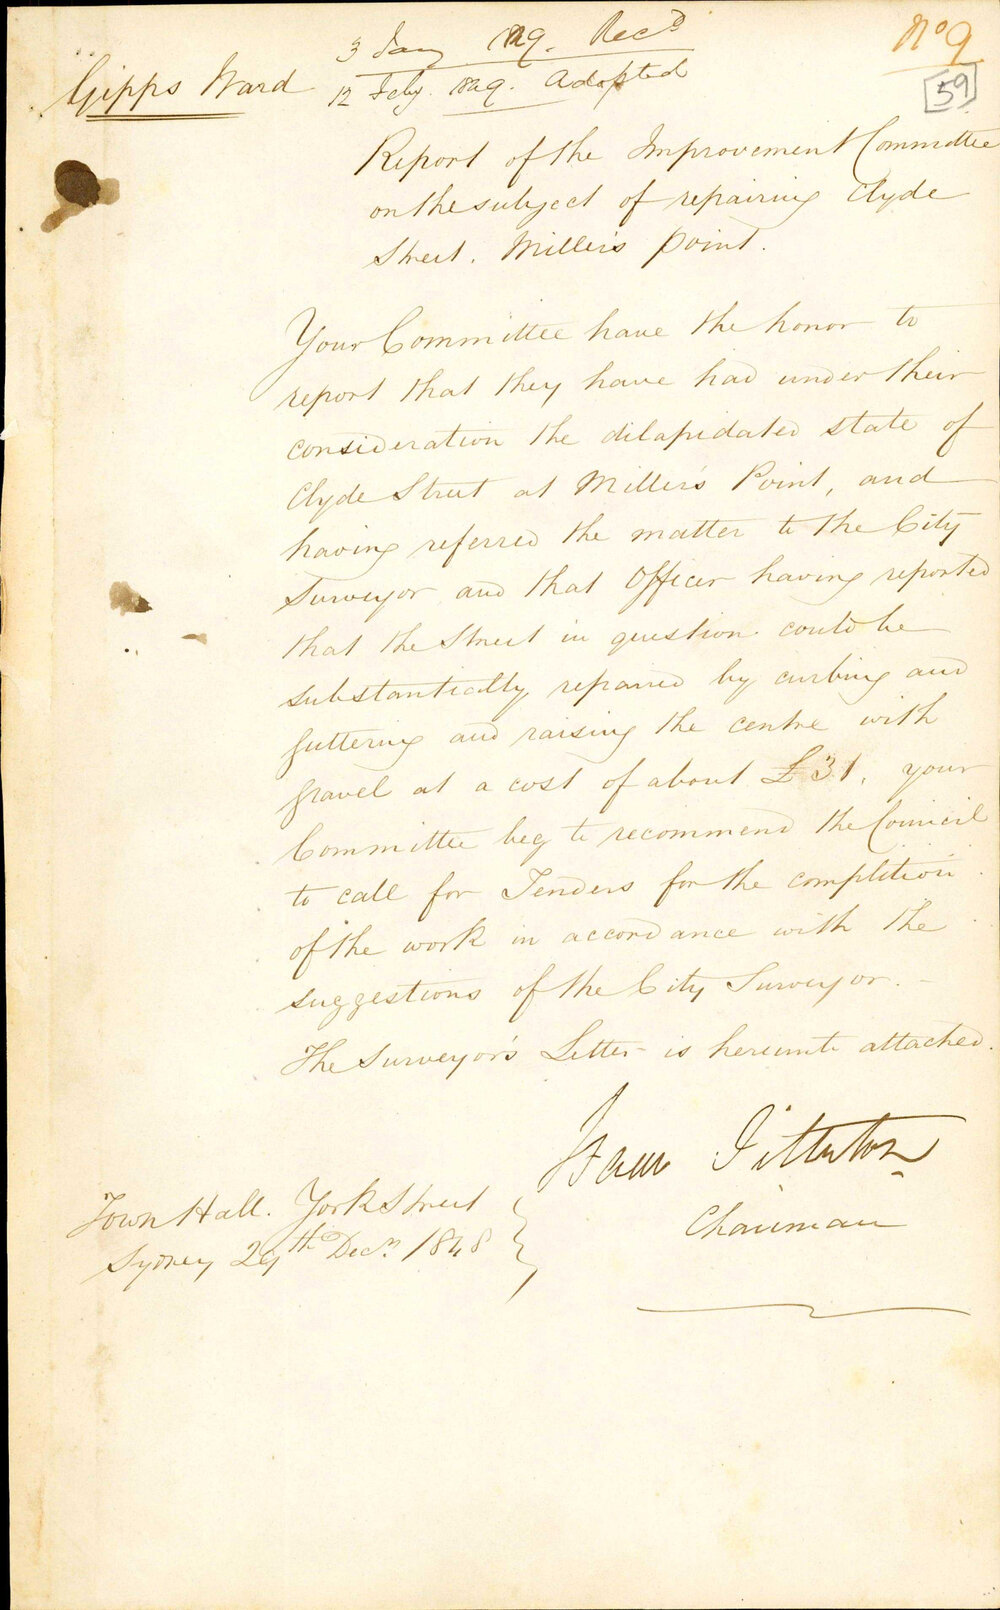 3 Jany 1849. Recd
12 Feby. 1849. Adopted
No 9
59
Gipps Ward
Report of the Improvement Committee
on the subject of repairing Clyde
Street. Miller's Point.
Your Committee have the honor to
report that they have had under their
consideration the dilapidated state of
Clyde Street at Miller's Point, and
having referred the matter to the City
Surveyor and that Officer having reported
that the Street in question could be
substantially repaired by curbing and
guttering and raising the centre with
gravel at a cost of about £31. your
Committee beg to recommend the Council
to call for Tenders for the completion
of the work in accordance with the
suggestions of the City Surveyor.
The Surveyor's Letter is hereunto attached.
Isaac Titterton
Chairman
Town Hall. York Street
Sydney 29th Decr. 1848